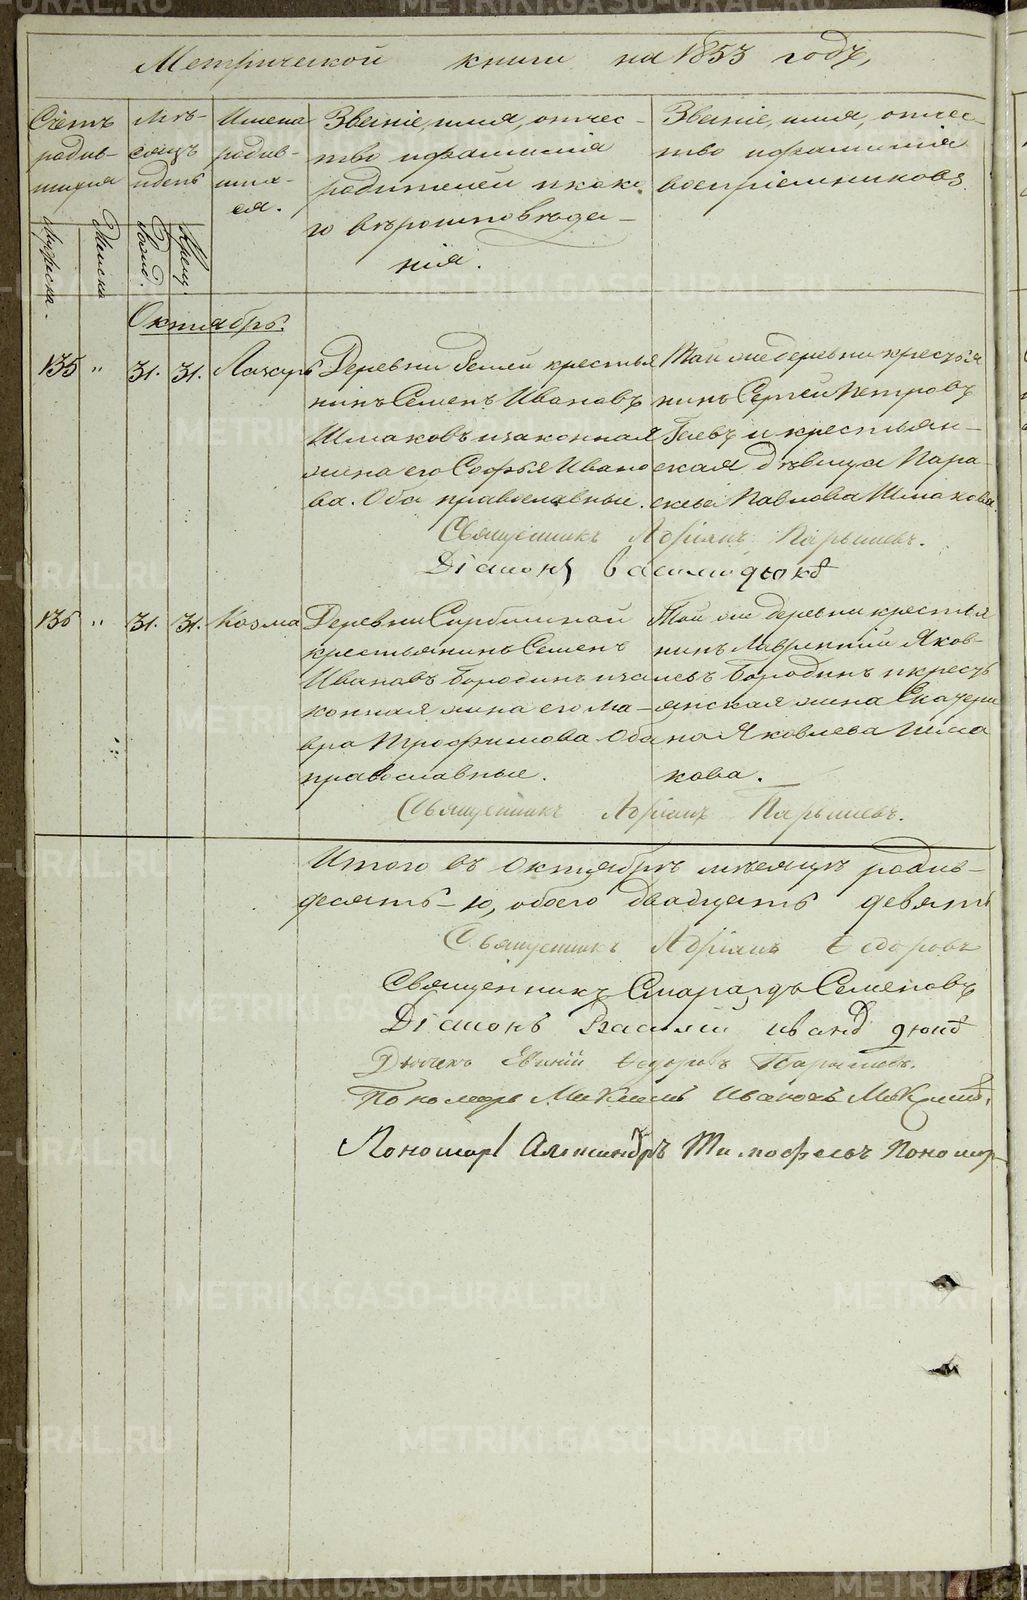 Метрической книги на 1853 годъ,
Счетъ родив-шихся
Мѣ-сяцъ и день
Имена родив-шихся.
Званіе, имя, отчес-
тво и фамилія
родителей и како-
го вѣроисповѣда-
нія.
Званіе, имя, отчес-
тво и фамилія
воспріемниковъ
Мужеска.
Женска
Рожд.
Крещ.
Октябрь.
135 " 31. 31. Лазарь
Деревни крестья
нинъ Семенъ Ивановъ
Шмаковъ и законная
жена его Софья Ивано
ва. Оба православные.
Той же деревни крестья
нинъ Сергей Петровъ
и крестьян-
ская дѣвица Пара-
скева Павлова Шмакова.
Священникъ Адріанъ Парышевъ.
Діаконъ
136 " 31. 31. Козма
Деревни
крестьянинъ Семенъ
Ивановъ Бородинъ и за
конная жена его Ма-
вра Трофимова Оба
православные.
Той же деревни крестья
нинъ Лаврентій Яков-
левъ Бородинъ и кресть
янская жина Екатери
на Яковлева Шма
кова.
Священникъ Адріанъ Парышевъ.
Итого въ Октябрѣ мѣсяцѣ родив-
десять - 10, обоего двадцать девять
Священникъ Адріанъ Федоровъ
Священникъ Смарагдъ Семеновъ
Діаконъ Василій Ивановъ
Дьячекъ Федоровъ Парышевъ.
Пономарь Михаилъ Ивановъ
Пономарь Александръ Тимофеевъ Пономар-
METRIKI.GASO-URAL.RU